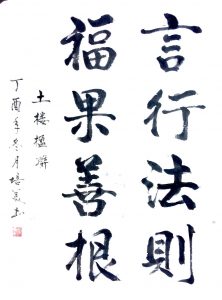 言行法則
福果善根
土楼楹聯
丁酉年冬月培